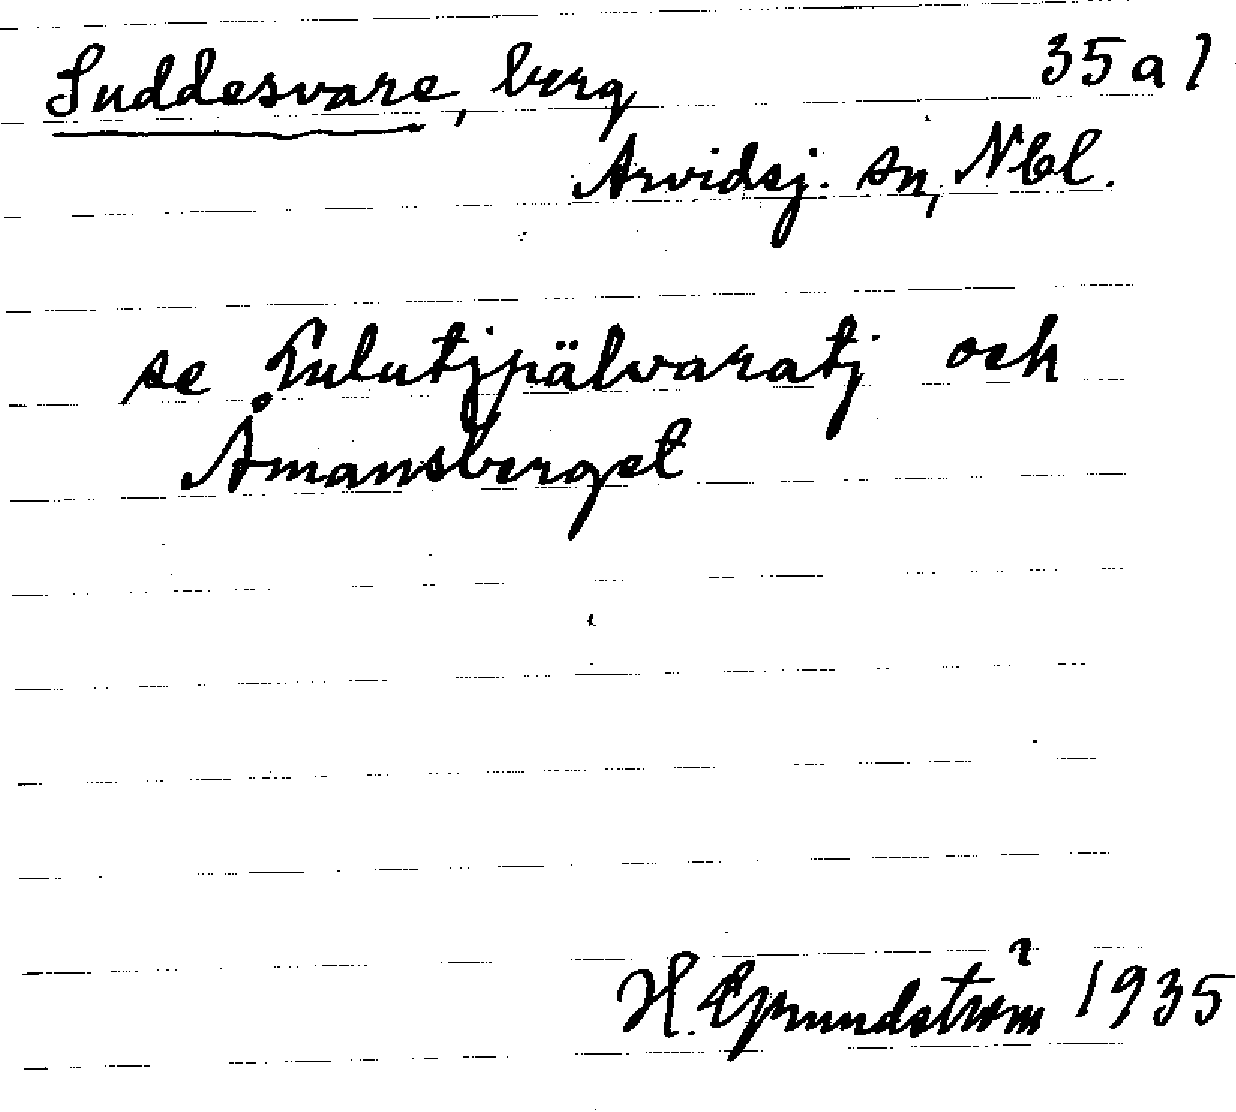 Suddesvare, berg 35 a 1
Arvidsj. sn, Nbl.
se Tulutjpälvaratj och
Åmansberget
H. Grundström 1935